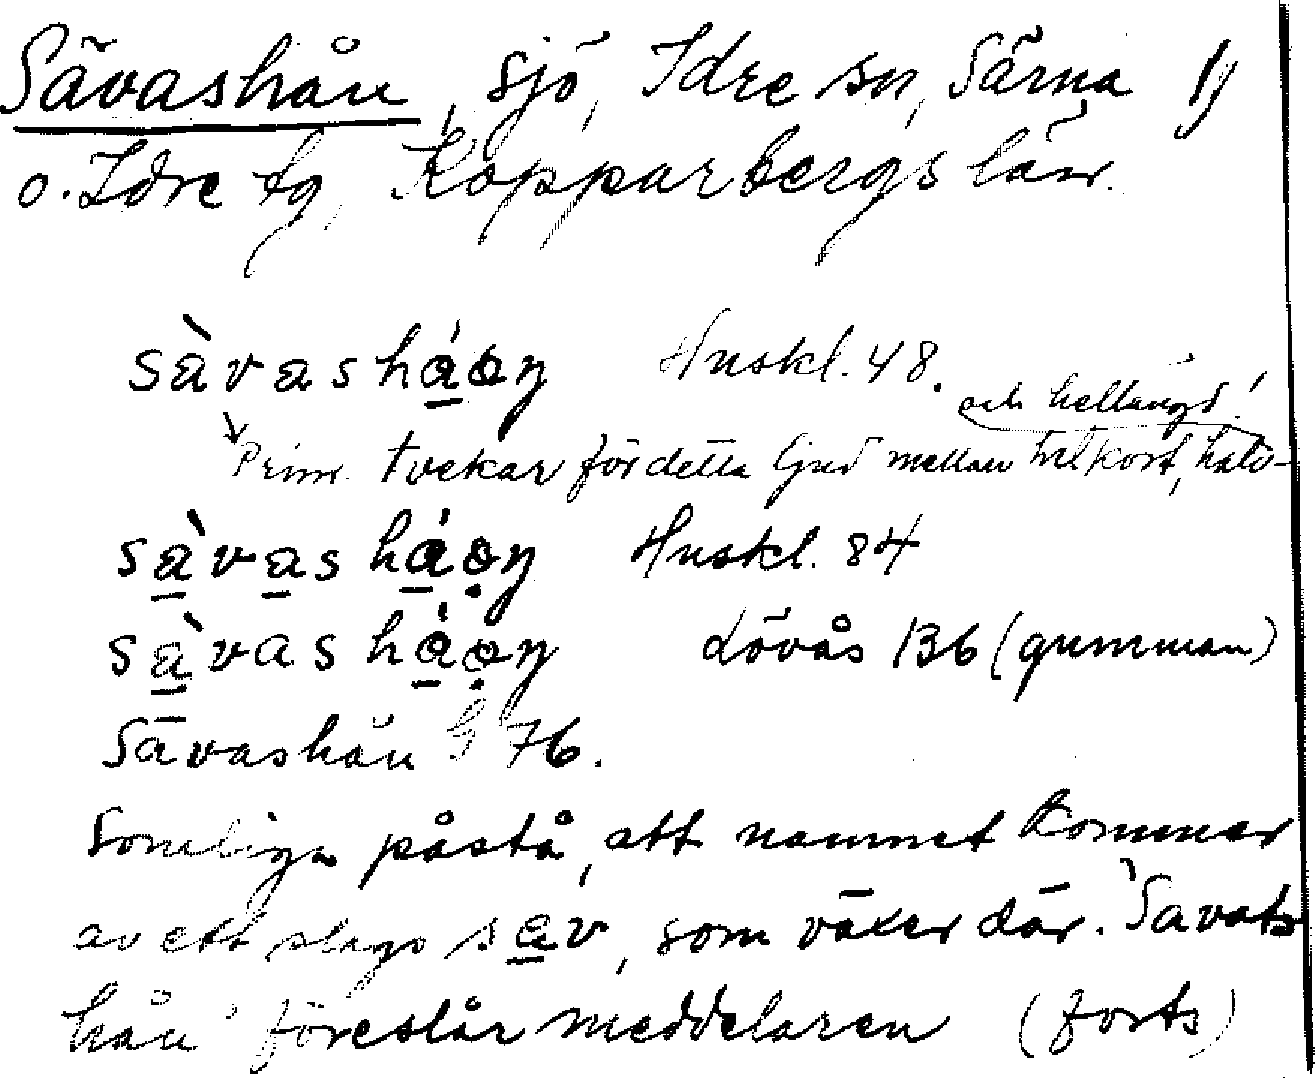 Sävashån, sjö, Idre sn, Särna 1)
o. Idre tg, Kopparbergs län.
sàvasháån Huskl. 48.
och hellångt!
Prim. tvekar för detta ljud mellan helkort, halv-
sàvasháån Huskl. 84
sàvasháån Lövås 136 (gumman)
Sävashån G 76.
Somliga påstå, att namnet kommer
av ett slags sav, som växer där. 'Savats
hån' föreslår meddelaren (forts)